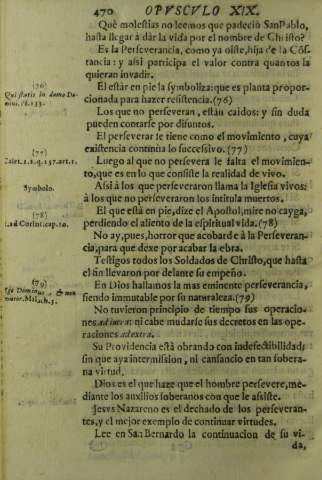 470 OPVSCVLO XIX.
Què molestias no leemos que padeciò San Pablo,
hasta llegar à dàr la vida por el nombre de Christo?
Es la Perseverancia, como ya oiste, hija de la Cõs-
tancia: y assi participa el valor contra quantos la
quieran invadir.
(76)
Qui statis in domo Do-
mini. Ps. 133.
El estàr en pie la symboliza: que es planta propor-
cionada para hazer resistencia.(76)
Los que no perseveran, estàn caidos: y sin duda
pueden contarse por difuntos.
(77)
El perseverar se tiene como el movimiento, cuya
existencia continùa lo successivo.(77)
Luego al que no persevera le falta el movimien-
to, que es en lo que consiste la realidad de vivo.
Symbolo.
Assi à los que perseveraron llama la Iglesia vivos:
à los que no perseveraron los intitula muertos.
(78)
1. ad Corint. cap. 10.
El que està en pie, dize el Apostol, mire no cayga,
perdiendo el aliento de la espiritual vida.(78)
No ay, pues, horror que acobarde à la Perseveran-
cia, para que dexe por acabar la obra.
Testigos todos los Soldados de Christo, que hasta
el fin llevaron por delante su empeño.
(79)
Ego Dominus, & non
mutor. Malach. 3.
En Dios hallamos la mas eminente perseverancia,
siendo immutable por su naturaleza.(79)
No tuvieron principio de tiempo sus operacio-
nes ad intra: ni cabe mudarse sus decretos en las ope-
raciones ad extra.
Su Providencia està obrando con indefectibilidad;
sin que aya intermission, ni cansancio en tan sobera-
na virtud.
Dios es el que haze que el hombre persevere, me-
diante los auxilios soberanos con que le assiste.
Jesvs Nazareno es el dechado de los perseveran-
tes, y el mejor exemplo de continuar virtudes.
Lee en San Bernardo la continuacion de su vi-
da,